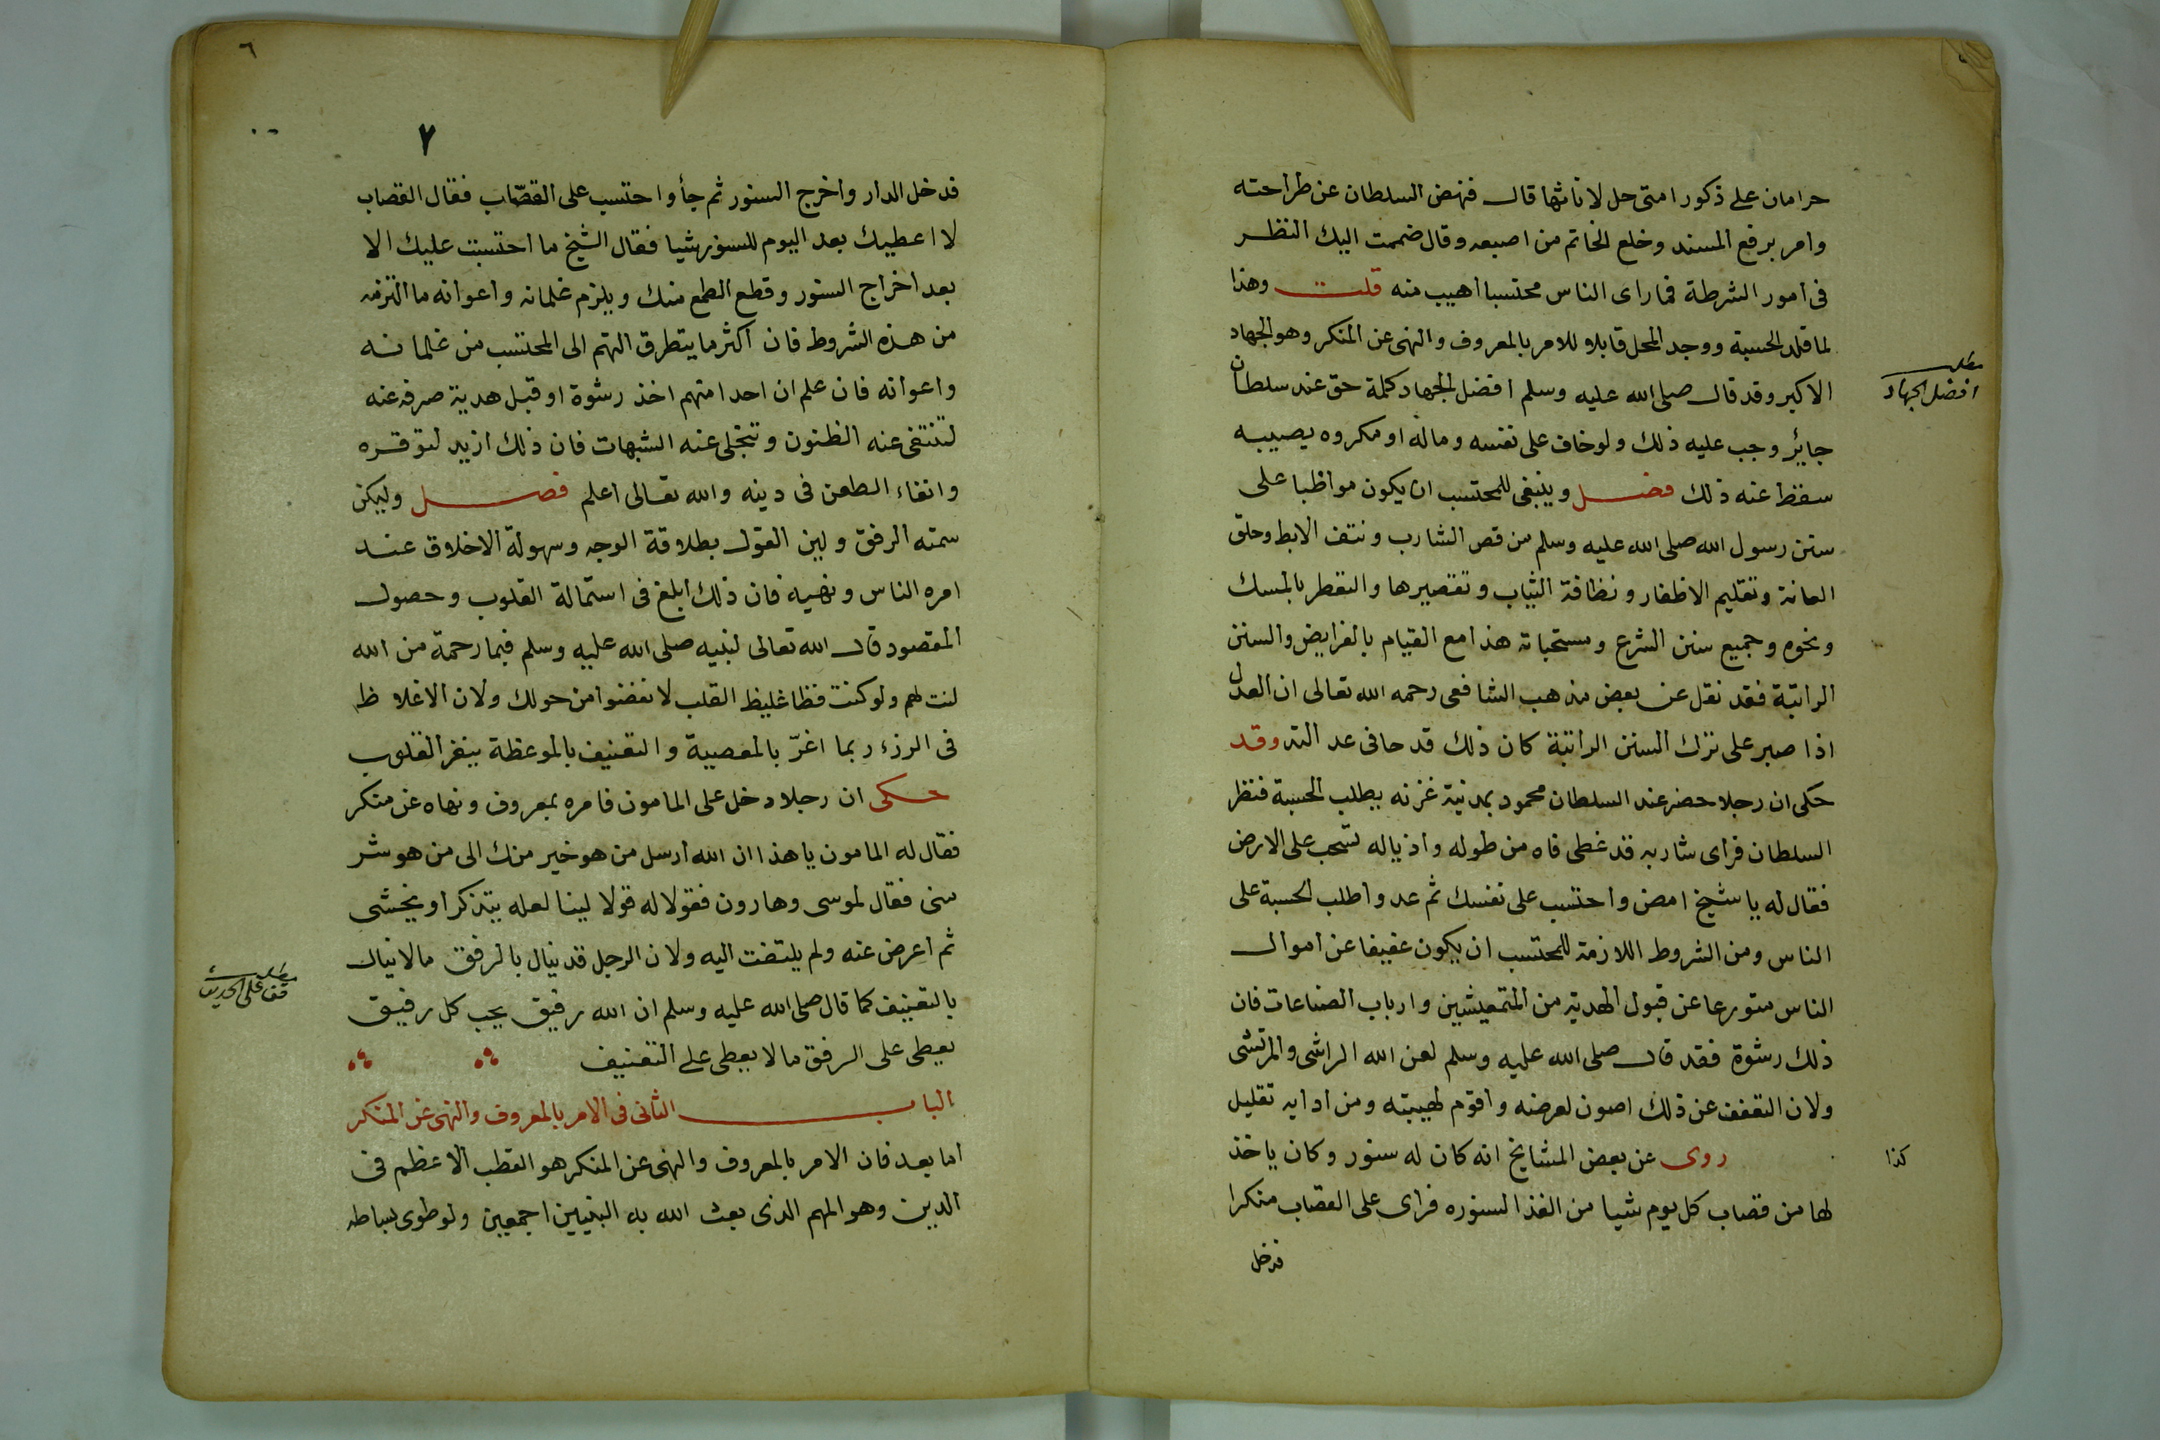 حرامان على ذكور امتى حل لاناثها قال فنهض السلطان عن طراحته
وامر برفع المسند وخلع الخاتم من اصبعه وقال ضممت اليك النظر
فى امور الشرطة فما راى الناس محتسبا اهيب منه قلت وهذا
لما قلد الحسبة ووجد المحل قابلا للامر بالمعروف والنهى عن المنكر وهو الجهاد
الاكبر وقد قال صلى الله عليه وسلم افضل الجهاد كلمة حق عند سلطان
مطلب
افضل الجهاد
جائر وجب عليه ذلك ولو خاف على نفسه وماله او مكروه يصيبه
سقط عنه ذلك فصل وينبغى للمحتسب ان يكون مواظبا على
سنن رسول الله صلى الله عليه وسلم من قص الشارب ونتف الابط وحلق
العانة وتقليم الاظفار ونظافة الثياب وتقصيرها والتعطر بالمسك
ونحوه وجميع سنن الشرع ومستحباته هذا مع القيام بالفرايض والسنن
الراتبة فقد نقل عن بعض مذهب الشافعى رحمه الله تعالى ان العدل
اذا صبر على ترك السنن الراتبة كان ذلك قدحا فى عدالته وقد
حكى ان رجلا حضر عند السلطان محمود بمدنية غزنه يطلب الحسبة فنظر
السلطان فراى شاربه قد غطى فاه من طوله واذياله تسحب على الارض
فقال له يا شيخ امض واحتسب على نفسك ثم عد واطلب الحسبة على
الناس ومن الشروط اللازمة للمحتسب ان يكون عفيفا عن اموال
الناس متورعا عن قبول الهدية من المتعيشين وارباب الصناعات فان
ذلك رشوة فقد قال صلى الله عليه وسلم لعن الله الراشى والمرتشى
ولان التعفف عن ذلك اصون لعرضه واقوم لهيبته ومن ادابه تقليل
كذا
روى عن بعض المشايخ انه كان له سنور وكان ياخذ
لها من قصاب كل يوم شيا من الغذا لسنوره فراى على القصاب منكرا
فدخل
٦
٧
فدخل الدار واخرج السنور ثم جأ واحتسب على القصّاب فقال القصاب
لا اعطيك بعد اليوم للسنور شيا فقال الشيخ ما احتسبت عليك الا
بعد اخراج السنور وقطع الطمع منك ويلزم غلمانه واعوانه ما التزمه
من هذه الشروط فان اكثر ما يتطرق التهم الى المحتسب من غلمانه
واعوانه فان علم ان احدا منهم اخذ رشوة او قبل هدية صرفه عنه
لتنتفى عنه الظنون وتنجلى عنه الشبهات فان ذلك ازيد لتوقره
وانفاء الطعن فى دينه والله تعالى اعلم فصل وليكن
سمته الرفق ولين القول بطلاقة الوجه وسهولة الاخلاق عند
امره الناس ونهيه فان ذلك ابلغ فى استمالة القلوب وحصول
المقصود قال الله تعالى لنبيه صلى الله عليه وسلم فبما رحمة من الله
لنت لهم ولو كنت فظا غليظ القلب لانفضوا من حولك ولان الاغلاظ
فى الزجر ربما اغرّ بالمعصية والتعنيف بالموعظة ينفر القلوب
حكى ان رجلا دخل على المامون فامره بمعروف ونهاه عن منكر
فقال له المامون يا هذا ان الله ارسل من هو خير منك الى من هو شر
منى فقال لموسى وهارون فقولا له قولا لينا لعله يتذكر او يخشى
ثم اعرض عنه ولم يلتفت اليه ولان الرجل قد ينال بالرفق ما لا ينال
مطلب
قف على الحديث
بالتعنيف كما قال صلى الله عليه وسلم ان الله رفيق يحب كل رفيق
يعطى على الرفق ما لا يعطى على التعنيف
الباب الثانى فى الامر بالمعروف والنهى عن المنكر
اما بعد فان الامر بالمعروف والنهى عن المنكر هو القطب الاعظم فى
الدين وهو المهم الذى بعث الله به النبيين اجمعين ولو طوى بساطه